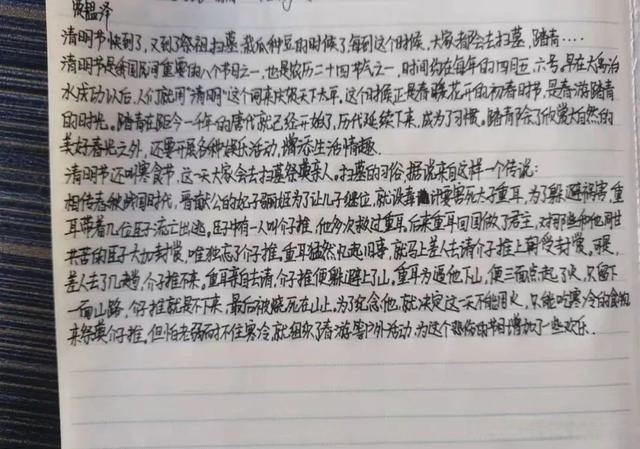 清明节快到了，又到了祭祖扫墓、栽瓜种豆的时候了每到这个时候，大家都会去扫墓，踏青....
清明节是我国民间重要的八个节日之一，也是农历二十四节气之一，时间约在每年的四月五、六号。早在大禹治
水成功以后，人们就用"清明"这个词来庆祝天下太平。这个时候正是春暖花开的初春时节，是春游踏青
的时光。踏青在距今一千年的唐代就已经开始了，历代延续下来，成为了习惯。踏青除了欣赏大自然的
美好春光之外，还要开展各种娱乐活动，增添生活情趣。
清明节还叫寒食节，这一天大家会去扫墓祭奠亲人，扫墓的习俗，据说来自这样一个传说：
相传春秋战国时代，晋献公的妃子骊姬为了让儿子继位，就设毒计要害死太子重耳，为了躲避祸害，重
耳带着几位臣子流亡出逃，臣子中有一人叫介子推，他多次救过重耳，后来重耳回国做了君主，对那些和他同甘
共苦的臣子大加封赏，唯独忘了介子推。重耳猛然忆起旧事，就马上差人去请介子推上朝受封赏。可是，
差人去了几趟，介子推不来。重耳亲自去请，介子推便躲避上了山。重耳为逼他下山，便三面点起了火，只留下
一面山路，介子推就是不下来，最后被烧死在山上。为了纪念他，就决定这一天不能用火，只能吃寒冷的食物
来祭奠介子推。但怕老弱耐不住寒冷，就组织了春游等户外活动，为这个悲伤的节日增加了一些欢乐.